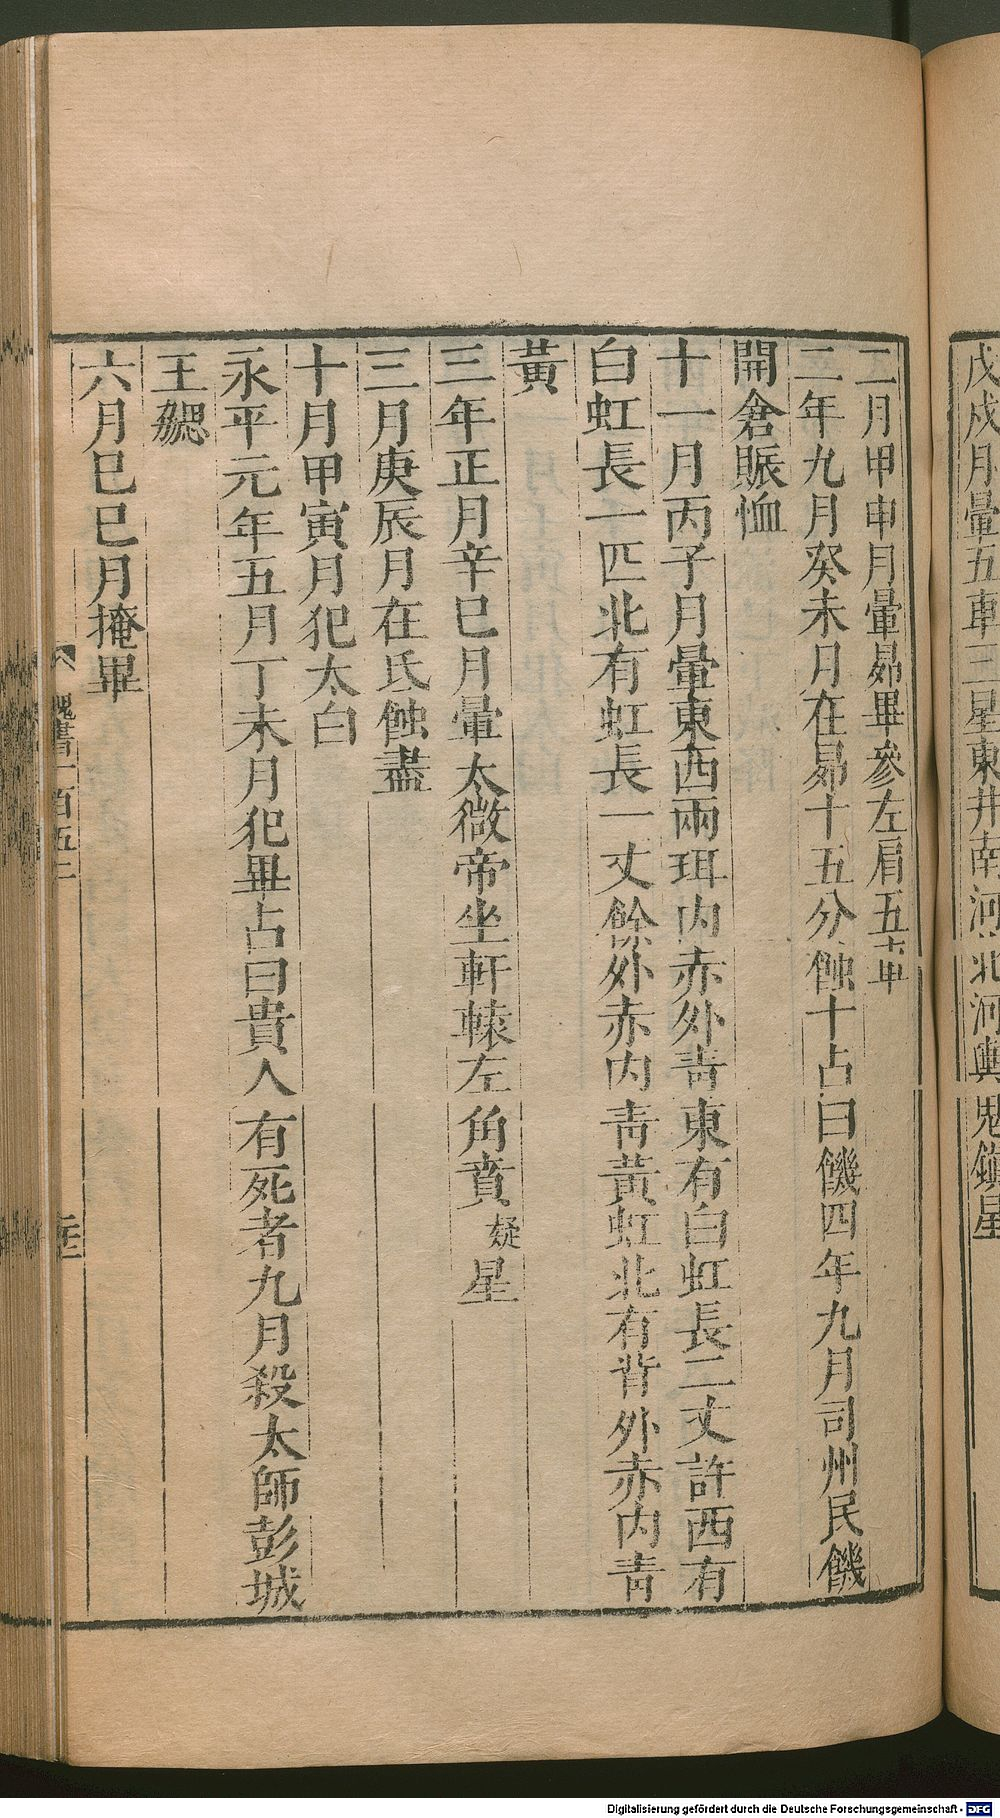 戊戌月暈五車三星東井南河北河輿鬼鎮星
二月甲申月暈昴畢參左肩五車
二年九月癸未月在昴十五分蝕十占曰饑四年九月司州民饑
開倉賑恤
十一月丙子月暈東西兩珥內赤外青東有白虹長二丈許西有
白虹長一匹北有虹長一丈餘外赤內青黃虹北有背外赤內青
黃
三年正月辛巳月暈太微帝坐軒轅左角賁疑星
三月庚辰月在氐蝕盡
十月甲寅月犯太白
永平元年五月丁未月犯畢占曰貴人有死者九月殺太師彭城
王勰
六月己巳月掩畢
魏書一百五二
Digitalisierung gefördert durch die Deutsche Forschungsgemeinschaft - DFG